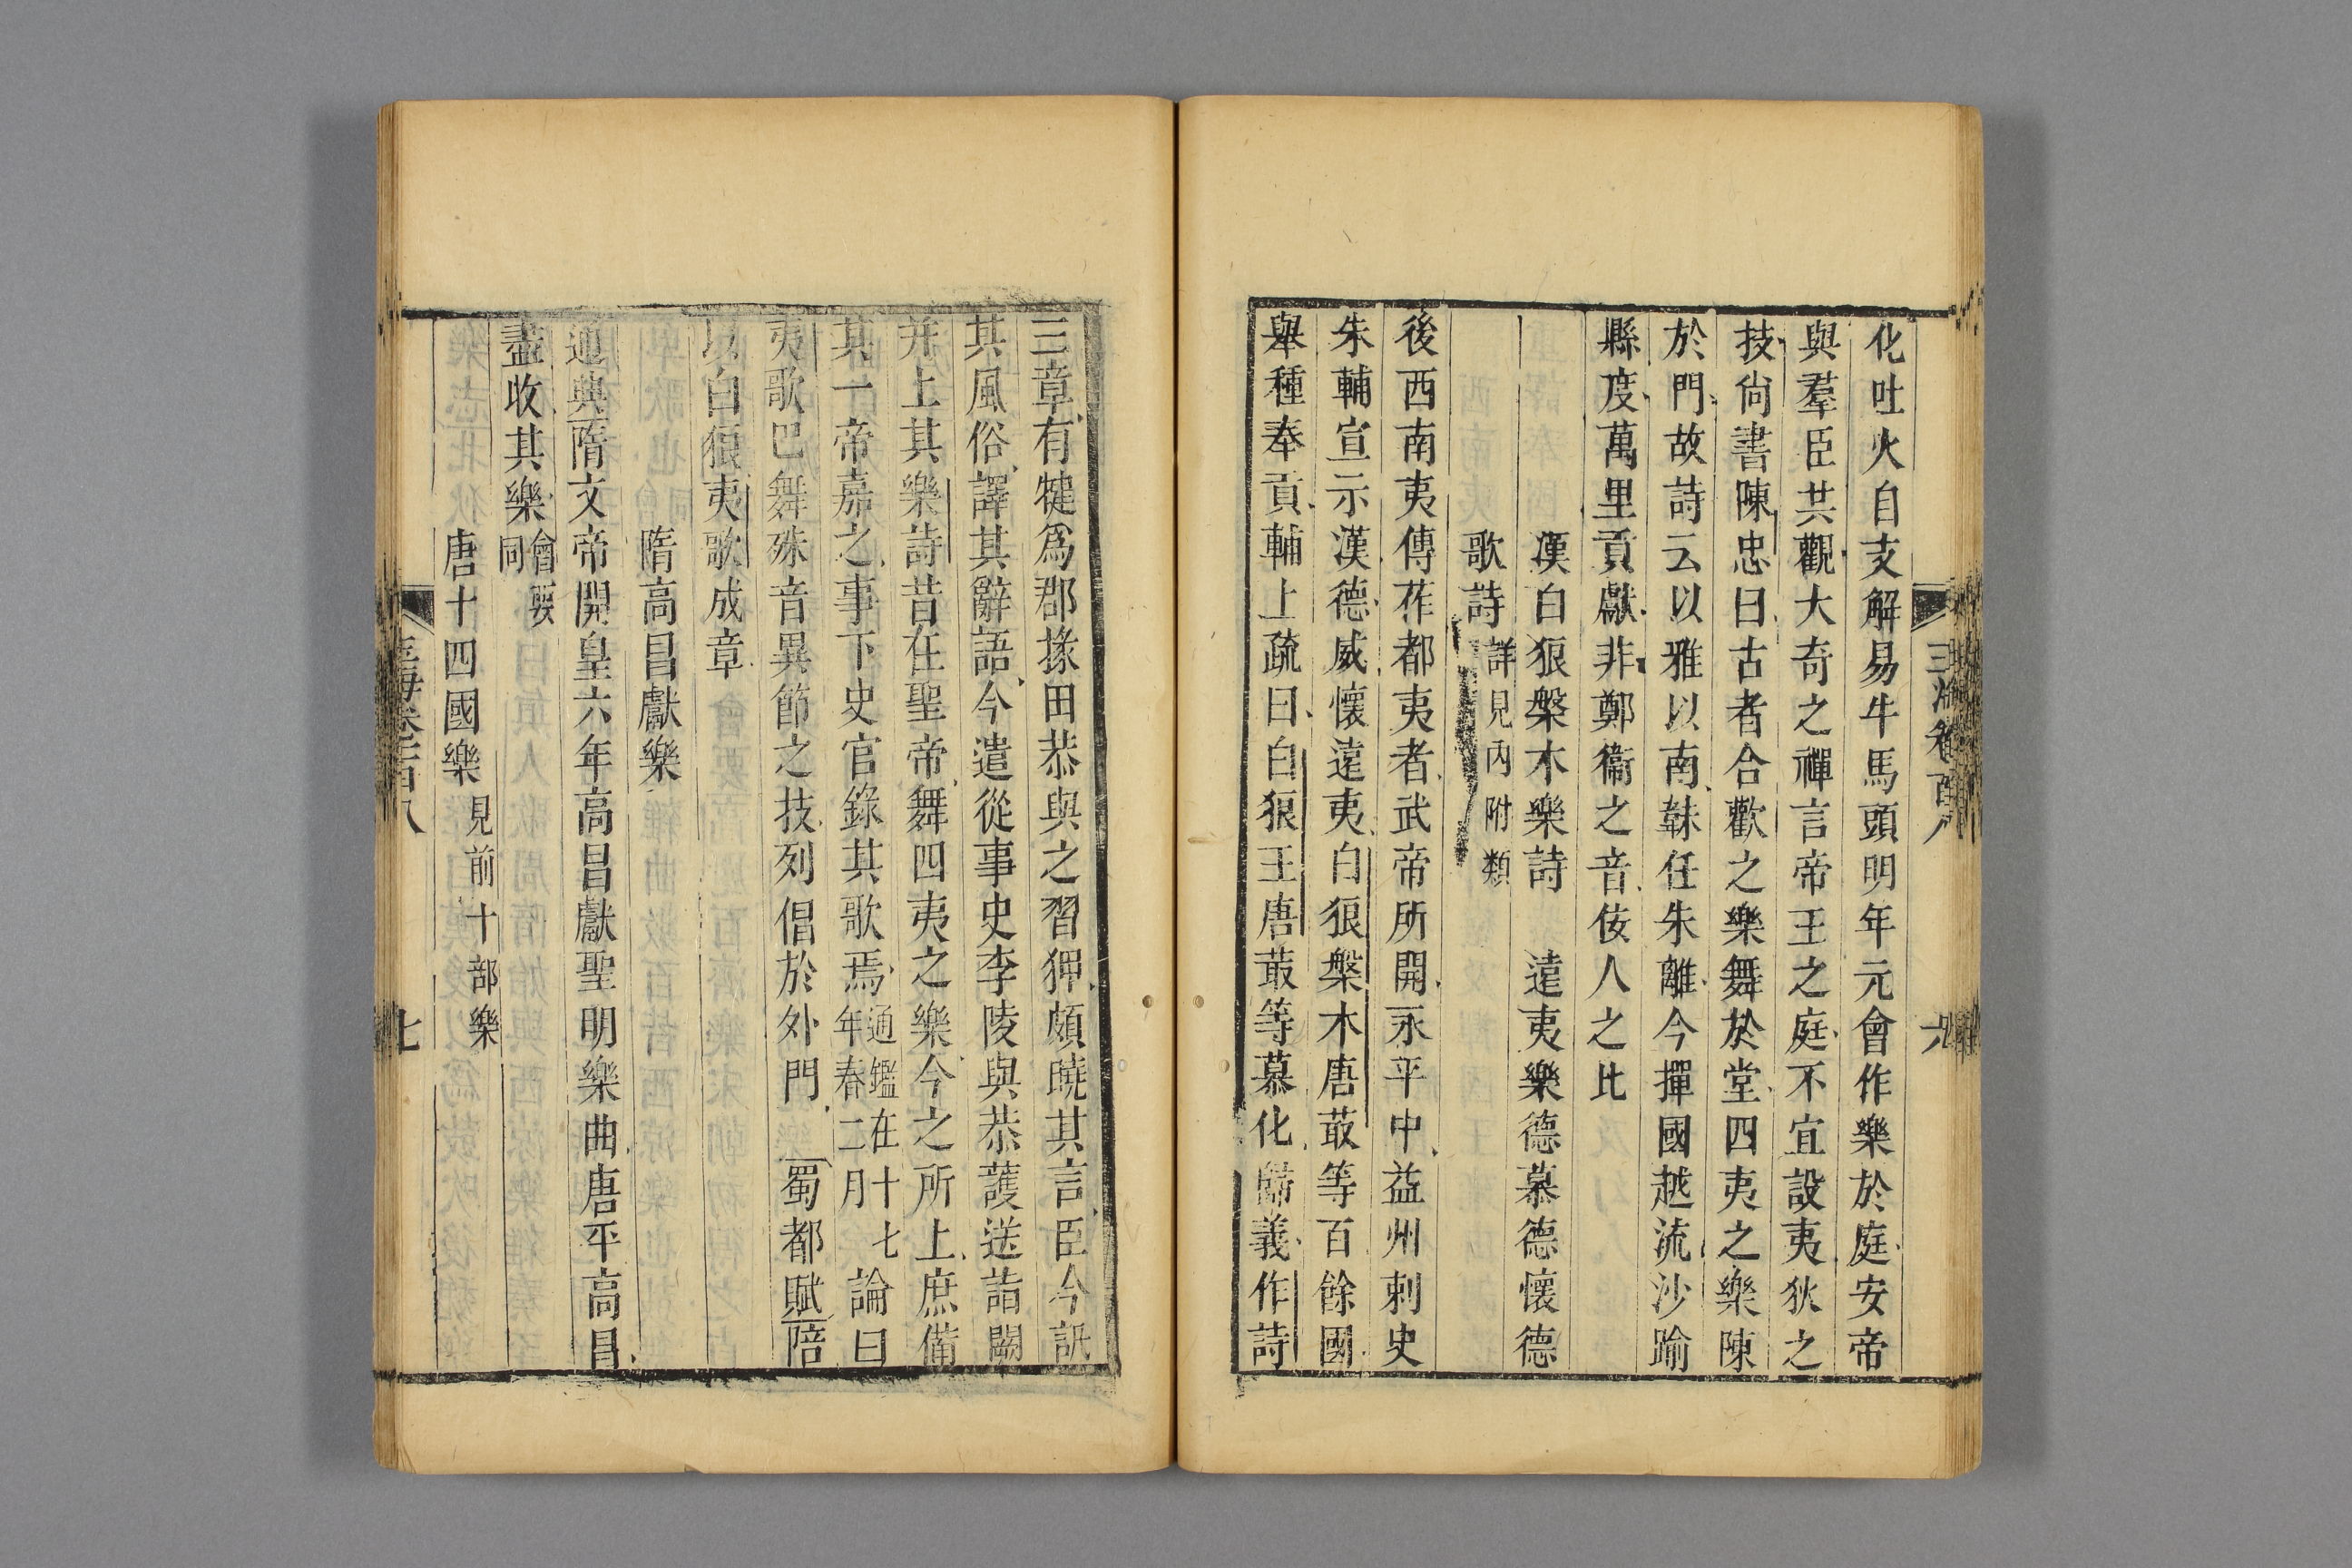 化吐火自支解易牛馬頭明年元會作樂於庭安帝
與羣臣共觀大奇之禪言帝王之庭不宜設夷狄之
技尙書陳忠曰古者合歡之樂舞於堂四夷之樂陳
於門故詩云以雅以南韎任朱離今撣國越流沙踰
縣度萬里貢獻非鄭衞之音佞人之比
漢白狼槃木樂詩 遠夷樂德慕德懷德
歌詩 詳見內附類
後西南夷傳莋都夷者武帝所開永平中益州刺史
朱輔宣示漢德威懷遠夷白狼槃木唐菆等百餘國
舉種奉貢輔上疏曰白狼王唐菆等慕化歸義作詩
三章有犍爲郡掾田恭與之習狎頗曉其言臣今訊
其風俗譯其辭語今遣從事史李陵與恭護送詣闕
并上其樂詩昔在聖帝舞四夷之樂今之所上庶備
其一帝嘉之事下史官錄其歌焉通鑑在十七年春二月論曰
夷歌巴舞殊音異節之技列倡於外門 蜀都賦陪
以白狼夷歌成章
隋高昌獻樂
通典隋文帝開皇六年高昌獻聖明樂曲唐平高昌
盡收其樂會要同
唐十四國樂 見前十部樂
七